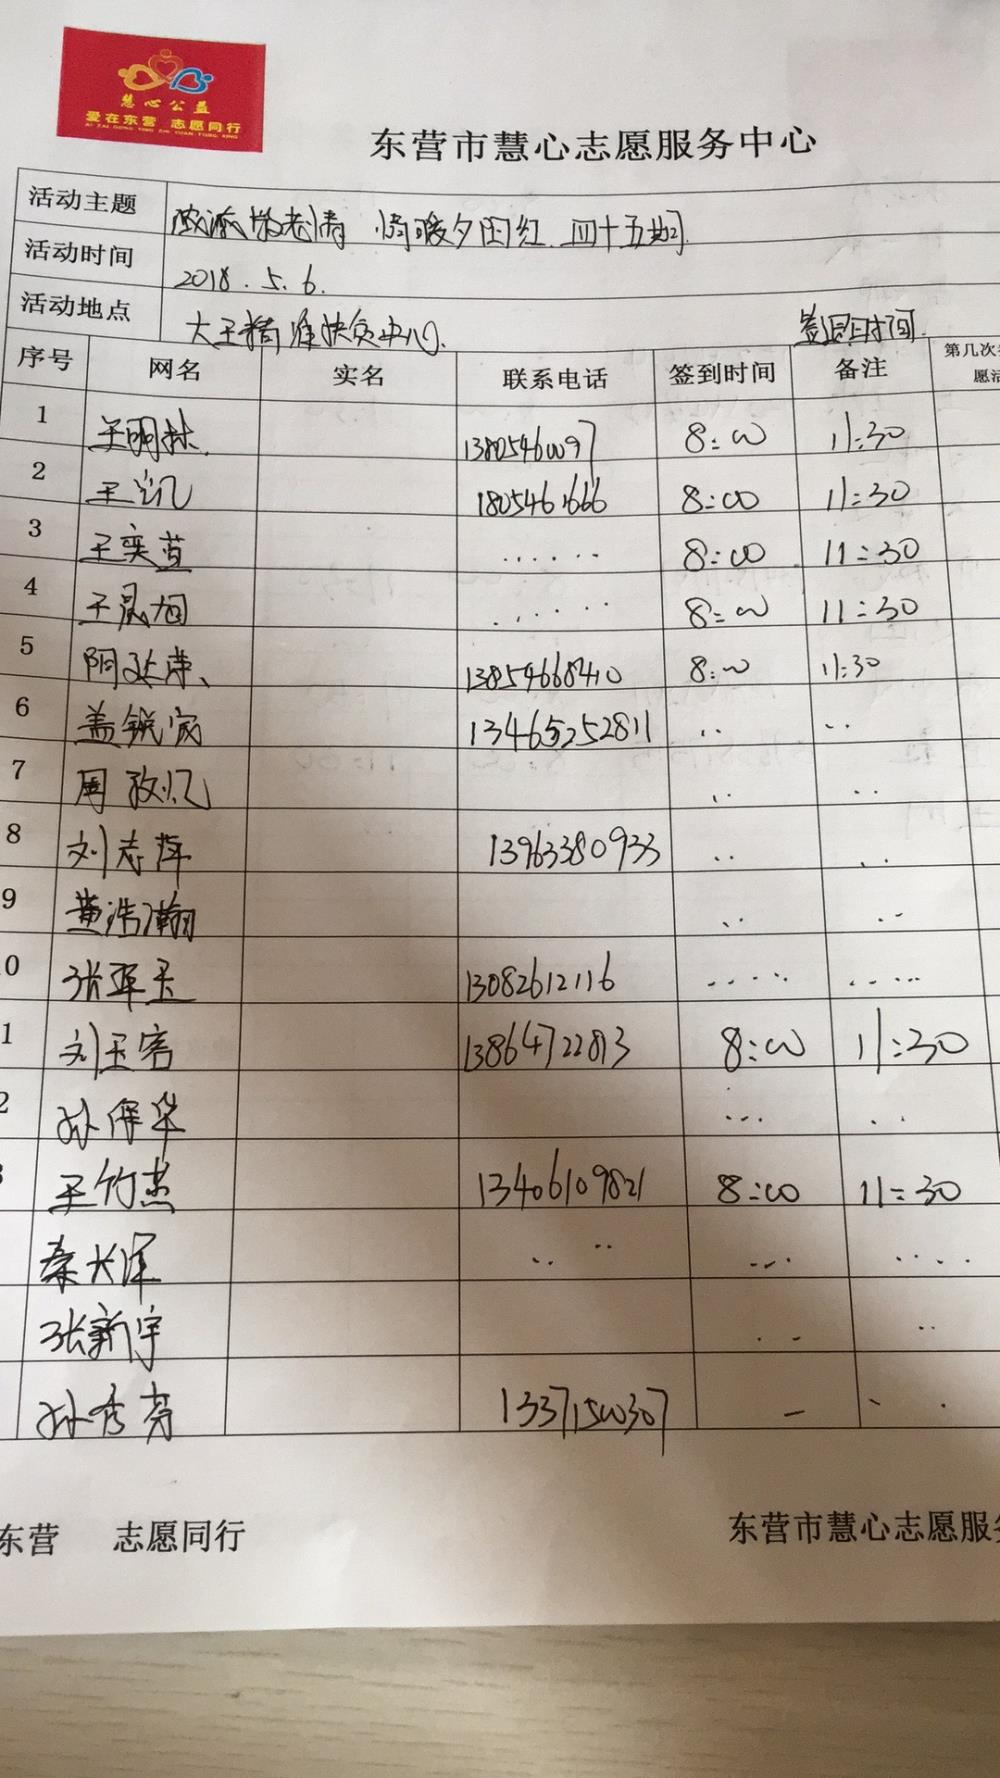 慧心公益
爱在东营 志愿同行
AI ZAI DONG YING ZHI YUAN TONG XING
东营市慧心志愿服务中心
活动主题 敬老情 情暖夕阳红 四十五期
活动时间 2018.5.6.
活动地点 大王精准扶贫中心
签退时间
序号 网名 实名 联系电话 签到时间 备注 第几次
愿活
1 王明林 13805460097 8:00 11:30
2 王凯 1805461666 8:00 11:30
3 王奕萱 ...... 8:00 11:30
4 王晟旭 ...... 8:00 11:30
5 13854668410 8:00 11:30
6 盖锐家 13465252811 .. ..
7 周孜忆 .. ..
8 刘志萍 13963380933 .. ..
9 黄浩瀚 .. ..
0 张翠玉 13082612116 ..... .....
1 刘玉客 13864722813 8:00 11:30
2 孙保华 ... ..
3 王竹燕 13406109821 8:00 11:30
秦大泽 .. .. ... ....
张新宇 .. ..
孙秀亮 13371500307 – . .
东营 志愿同行
东营市慧心志愿服务